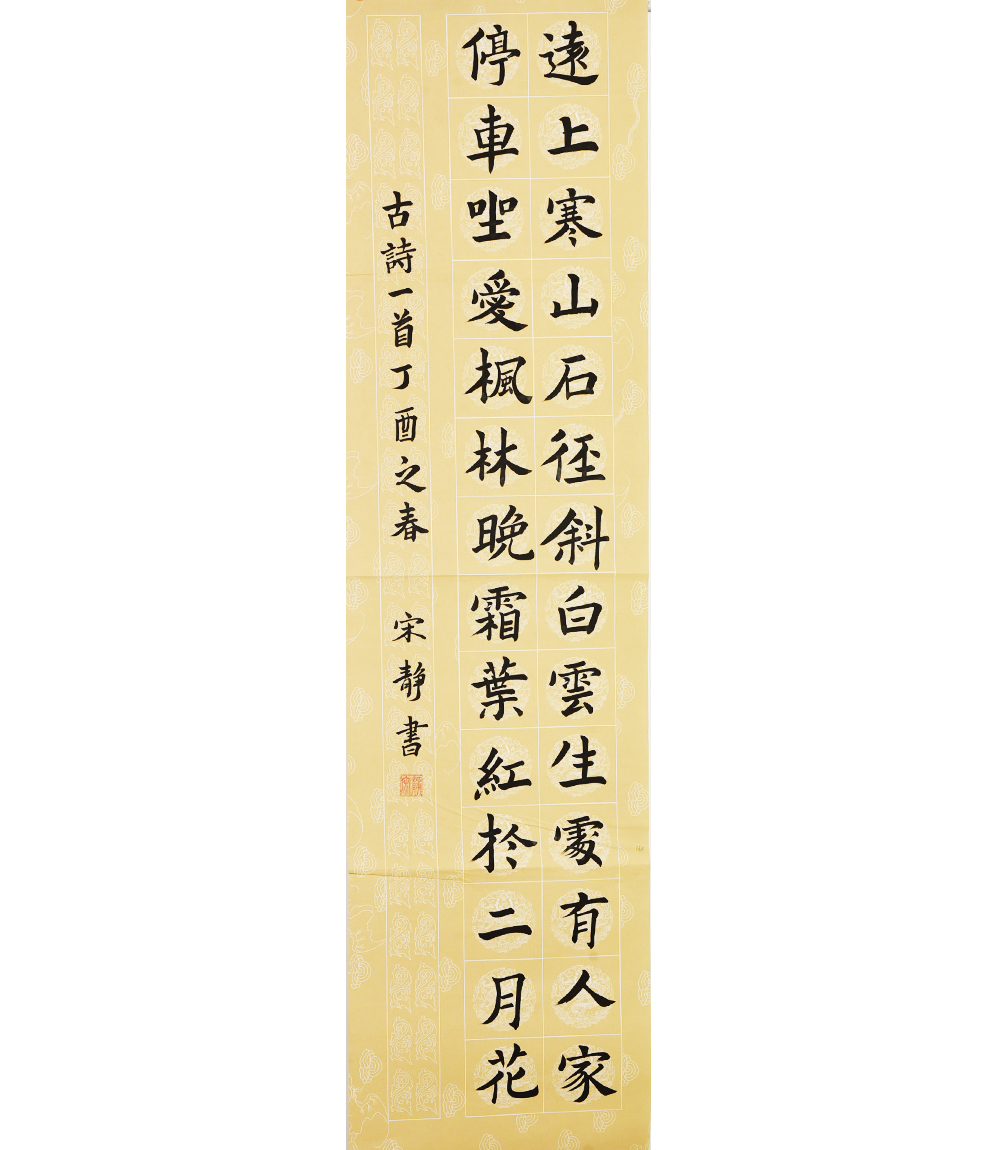 遠上寒山石徑斜白雲生處有人家
停車坐愛楓林晚霜葉紅於二月花
古詩一首丁酉之春 宋靜書